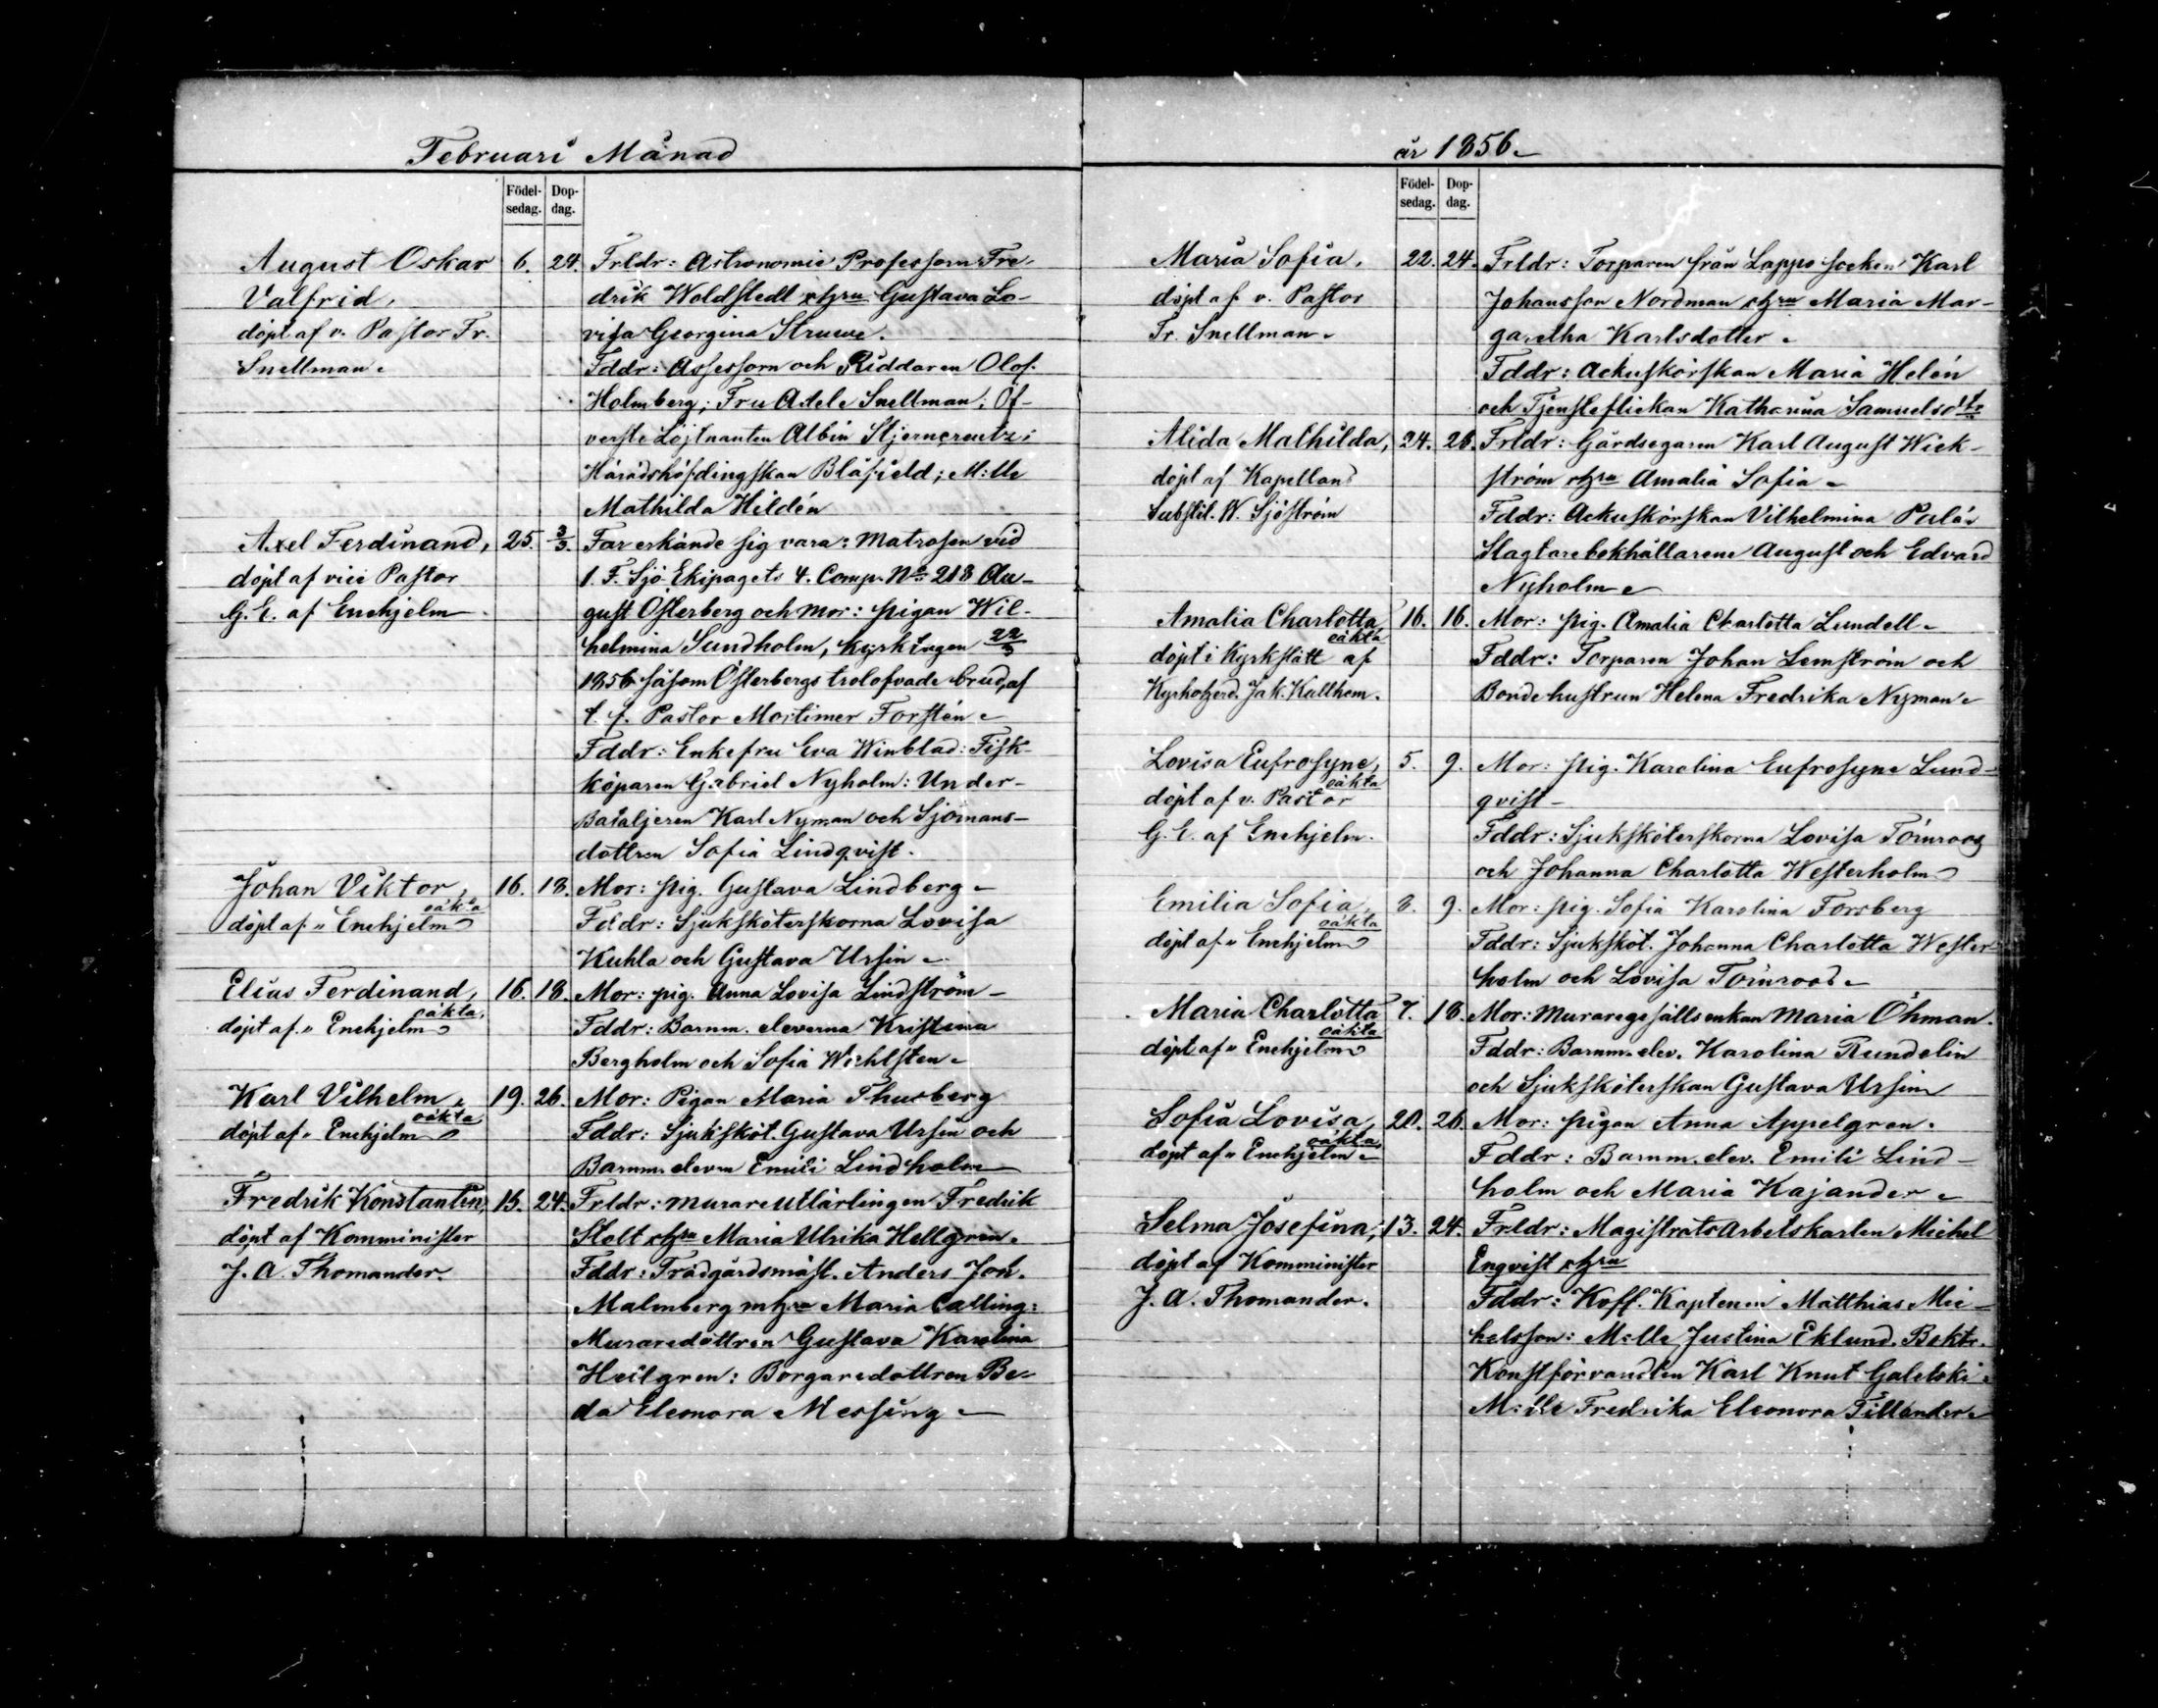 Februari Månad
Födel-
sedag.
Dop-
dag.
August Oskar 6. 24. Frldr: Astronomie Professorn Fre-
Valfrid, drik Woldstedt o hru Gustava Lo-
döpt af v. Pastor Fr. visa Georgina Struwe.
Snellman. Fddr: Assessorn och Riddaren Olof
Holmberg; Fru Adele Snellman; Öf-
verste Löjtnanten Albin Stjerncreutz;
Häradshöfdingskan Blåfield; M:lle
Mathilda Hildén
Axel Ferdinand, 25. 3/3. Far erkände sig vara: Matrosen vid
döpt af vice Pastor 1. F. Sjö Ekipagets 4. Comp. No 218 Au-
G. E. af Enehjelm gust Österberg och mor: pigan Wil-
helmina Sundholm, kyrktagen 22/3
1856 såsom Österbergs trolofvade brud, af
t. f. Pastor Mortimer Forstén
Fddr: Enkefru Eva Winblad: Fisk-
köparen Gabriel Nyholm: Under-
Bataljeren Karl Nyman och Sjömans-
dottren Sofia Lindqvist.
Johan Viktor, 16. 18. Mor: pig. Gustava Lindberg
oäkta
döpt af " Enehjelm Fddr: Sjuksköterskorna Lovisa
Kuhla och Gustava Ursin
Elias Ferdinand, 16. 18. Mor: pig. Anna Lovisa Lindström
oäkta,
döpt af " Enehjelm Fddr: Barnm. eleverna Kristina
Bergholm och Sofia Wahlsten
Karl Vilhelm, 19. 26. Mor: Pigan Maria Thusberg
oäkta
döpt af " Enehjelm Fddr: Sjuksköt. Gustava Ursin och
Barnm. eleven Emili Lindholm
Fredrik Konstantin, 15. 24. Frldr: Murareutlärlingen Fredrik
döpt af Komminister Stolt o hru Maria Ulrika Hellgren.
J. A. Thomander. Fddr: Trädgårdsmäst. Anders Joh.
Malmberg m hru Maria Catling:
Muraredottren Gustava Karolina
Hellgren: Borgaredottren Be-
da Eleonora Messing
år 1856
Födel-
sedag.
Dop-
dag.
Maria Sofia, 22. 24. Frldr: Torparen från Lappo socken Karl
döpt af v. Pastor Johansson Nordman o hru Maria Mar-
Fr. Snellman garetha Karlsdotter
Fddr: Ackuskörskan Maria Helén
och Tjensteflickan Katharina Samuelsdtr
Alida Mathilda, 24. 26. Frldr: Gårdsegaren Karl August Wick-
döpt af Kapellans ström o hru Amalia Sofia
Substit. W. Sjöström Fddr: Ackuskörskan Vilhelmina
Slagtarebokhållarene August och Edvard
Nyholm
Amalia Charlotta, 16. 16. Mor: pig. Amalia Charlotta Lundell
oäkta
döpt i Kyrkslätt af Fddr: Torparen Johan Lemström och
Kyrkoherd. Jak. Kallhem. Bondehustrun Helena Fredrika Nyman
Lovisa Eufrosyne, 5. 9. Mor: pig. Karolina Eufrosyne Lund-
oäkta
döpt af v. Pastor qvist
G. E. af Enehjelm. Fddr: Sjuksköterskorna Lovisa Törnroos
och Johanna Charlotta Westerholm
Emilia Sofia, 8. 9. Mor: pig. Sofia Karolina Forsberg
oäkta
döpt af " Enehjelm Fddr: Sjuksköt. Johanna Charlotta Wester-
holm och Lovisa Törnroos
Maria Charlotta, 7. 18. Mor: Muraregesällsenkan Maria Öhman.
oäkta
döpt af " Enehjelm Fddr: Barnm. elev. Karolina Rundelin
och Sjuksköterskan Gustava Ursin
Sofia Lovisa, 20. 26. Mor: pigan Anna Appelgren.
oäkta
döpt af " Enehjelm Fddr: Barnm. elev. Emili Lind-
holm och Maria Kajander
Selma Josefina, 13. 24. Frldr: Magistrats Arbetskarlen Michel
döpt af Komminister Enqvist o hru
J. A. Thomander. Fddr: Koff. Kaptenen Matthias Mic-
helsson: M:lle Justina Eklund. Boktr.
Konstförvandten Karl Knut Galetski
M:lle Fredrika Eleonora Tillander